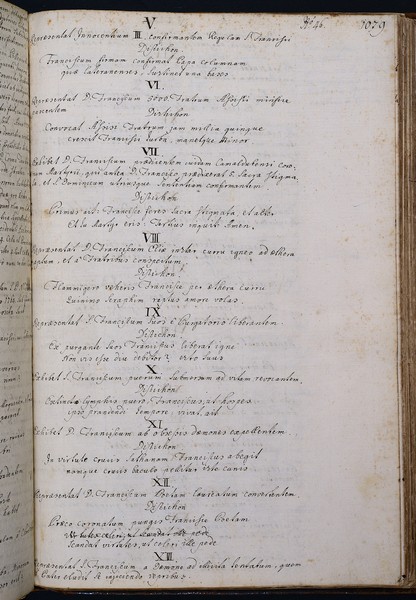 V
Nº 46. 1079
Repræsentat Innocentium III. confirmantem Regulam S. Francisci
Distichon
Franciscum firmam confirmat Papa columnam
quæ Lateranensi, sustinet una bases.
VI.
Repræsentat D. Franciscum 5000. Fratrum Assisii
Distichon
Convocat Assisi Fratrum jam millia quinque
crescit Francisci turba, manetque Minor
VII
Exhibet D. Franciscum prædicentem cuidam Camaldulensi
Martyrii, qui antea D. Francisco prædixerat S. Sacra Stigma
ta, et S. Dominicum utriusque sententiam confirmantem
Distichon
Primus ait: Francisce feres Sacra Stigmata, et alter
Et tu Martyr eris: Tertius inquit Amen.
VIII
Repræsentat D. Franciscum Eliæ instar curru igneo ad æthera
raptum, et à Fratribus conspectum
Distichon
Flammigero veheris Francisce per æthera curru
Quinimo Seraphim rectius amore volas.
IX
Repræsentat S. Franciscum Suos è Purgatorio liberantem.
Distichon
Ex purgante suos Franciscus liberat igne
Non vis esse diu debitor? esto suus
X
Exhibet S. Franciscum puerum submersum ad vitam revocantem
Distichon
puero, Franciscus, ut hospes
ipse prandendi tempore, vivat, ait
XI
Exhibet D. Franciscum ab obsessis dæmones expellentem.
Distichon
In virtute crucis Sathanam Franciscus abegit
namque crucis baculo pellitur iste canis
XII
Repræsentat D. Franciscum Poetam Laureatum convertentem.
Distichon
coronatum pungis Francisce Poetam
Scandat virtutes, ut celeri ille pede
XIII
Repræsentat S. Franciscum a Dæmone ad illicita tentatum, quem
eludit se injiciendo vepribus.